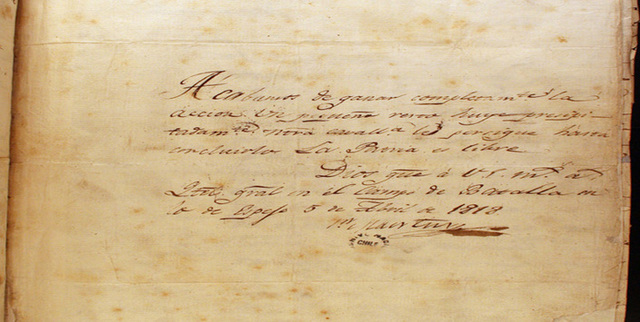 Acabamos de ganar completamte. la
accion. Un pequeño resto huye precipi-
tadamte. ntra. cavalla. lo persigue hasta
concluirlo. La Patria es libre.
Dios gue. á V.S. ms. as.
Qtel. gral. en el Campo de Batalla en
lo de Espejo 5 de Abril de 1818
Sn. Martin
CHILE